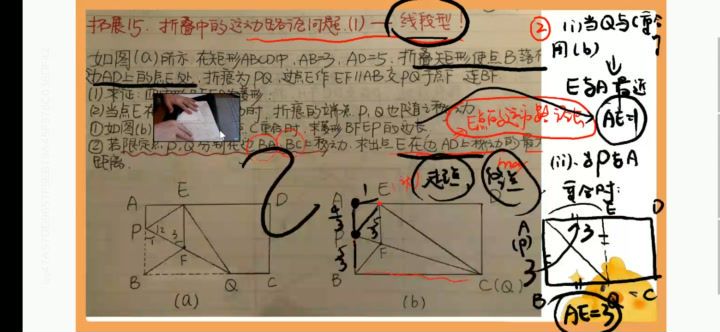 拓展15. 折叠中的运动路径问题.(1) — 线段型!
如图(a)所示.在矩形ABCD中,AB=3,AD=5,折叠矩形使点B落在
边AD上的点E处,折痕为PQ,过点E作EF∥AB交PQ于点F.连BF.
(1)求证:
(2)当点E在 时,折痕的端点P,Q也随之移动.
①如图(b) 重合时,求菱形BFEP的边长.
②若限定点P,Q分别在边BA,BC上移动.求出点E在边AD上移动的最大
距离.
E点的运动路径长
起点
终点
max
A
E
D
P
1 2
3
F
B
Q
C
(a)
A
1
E
D
4/3
P
5/3
5/3
F
B
C(Q)
(b)
②
(i)当Q与C重合
用(b)
E与A最近
AE=1
(ii).当P与A
重合时:
E
D
A
(P)
3
3
B
Q
C
AE=3